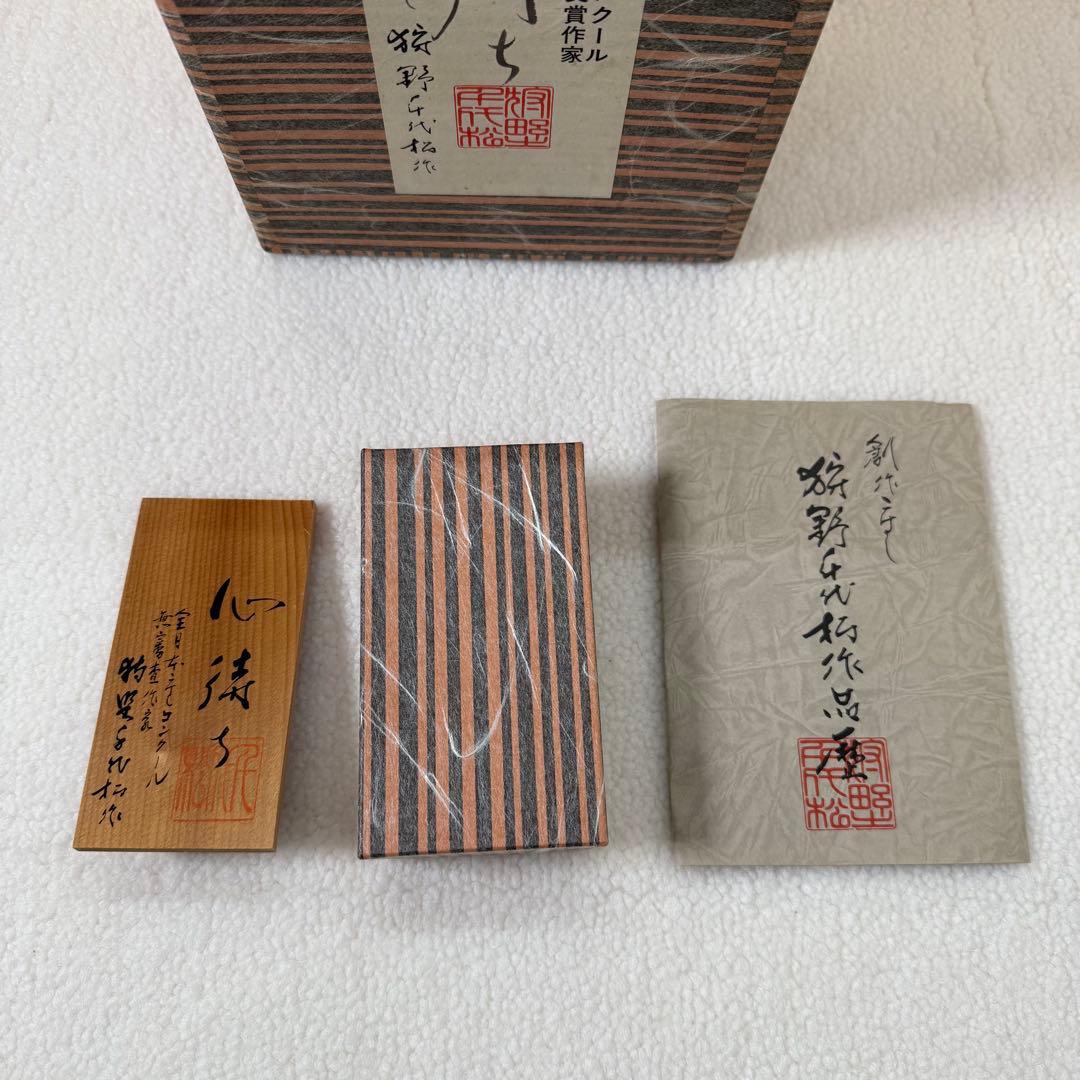 クール
賞作家
ち
狩野千代松作
狩野
千代松
心待ち
全日本こけしコンクール
無審査作家
狩野千代松作
創作こけし
狩野千代松作品歴
狩野
千代松